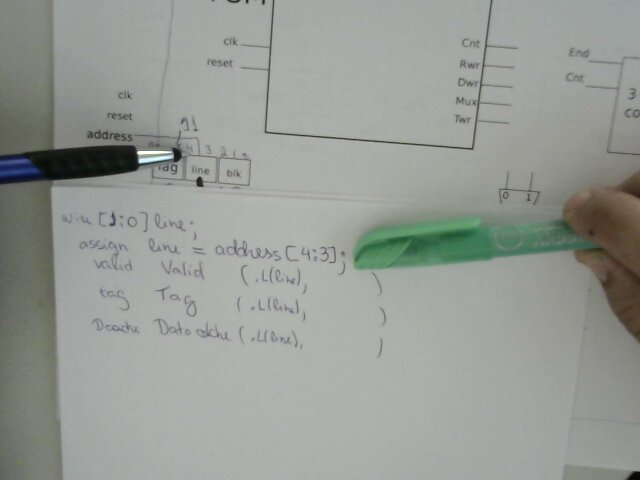 FSM
clk
reset
Cnt
Rwr
Dwr
Mux
Twr
End
Cnt
3
co
clk
reset
address
11
4 3 2 1
Tag line blk
0 1
wire [1:0] line;
assign line = address[4:3];
valid Valid (.L(line), )
tag Tag (.L(line), )
Dcache Datacache (.L(line), )